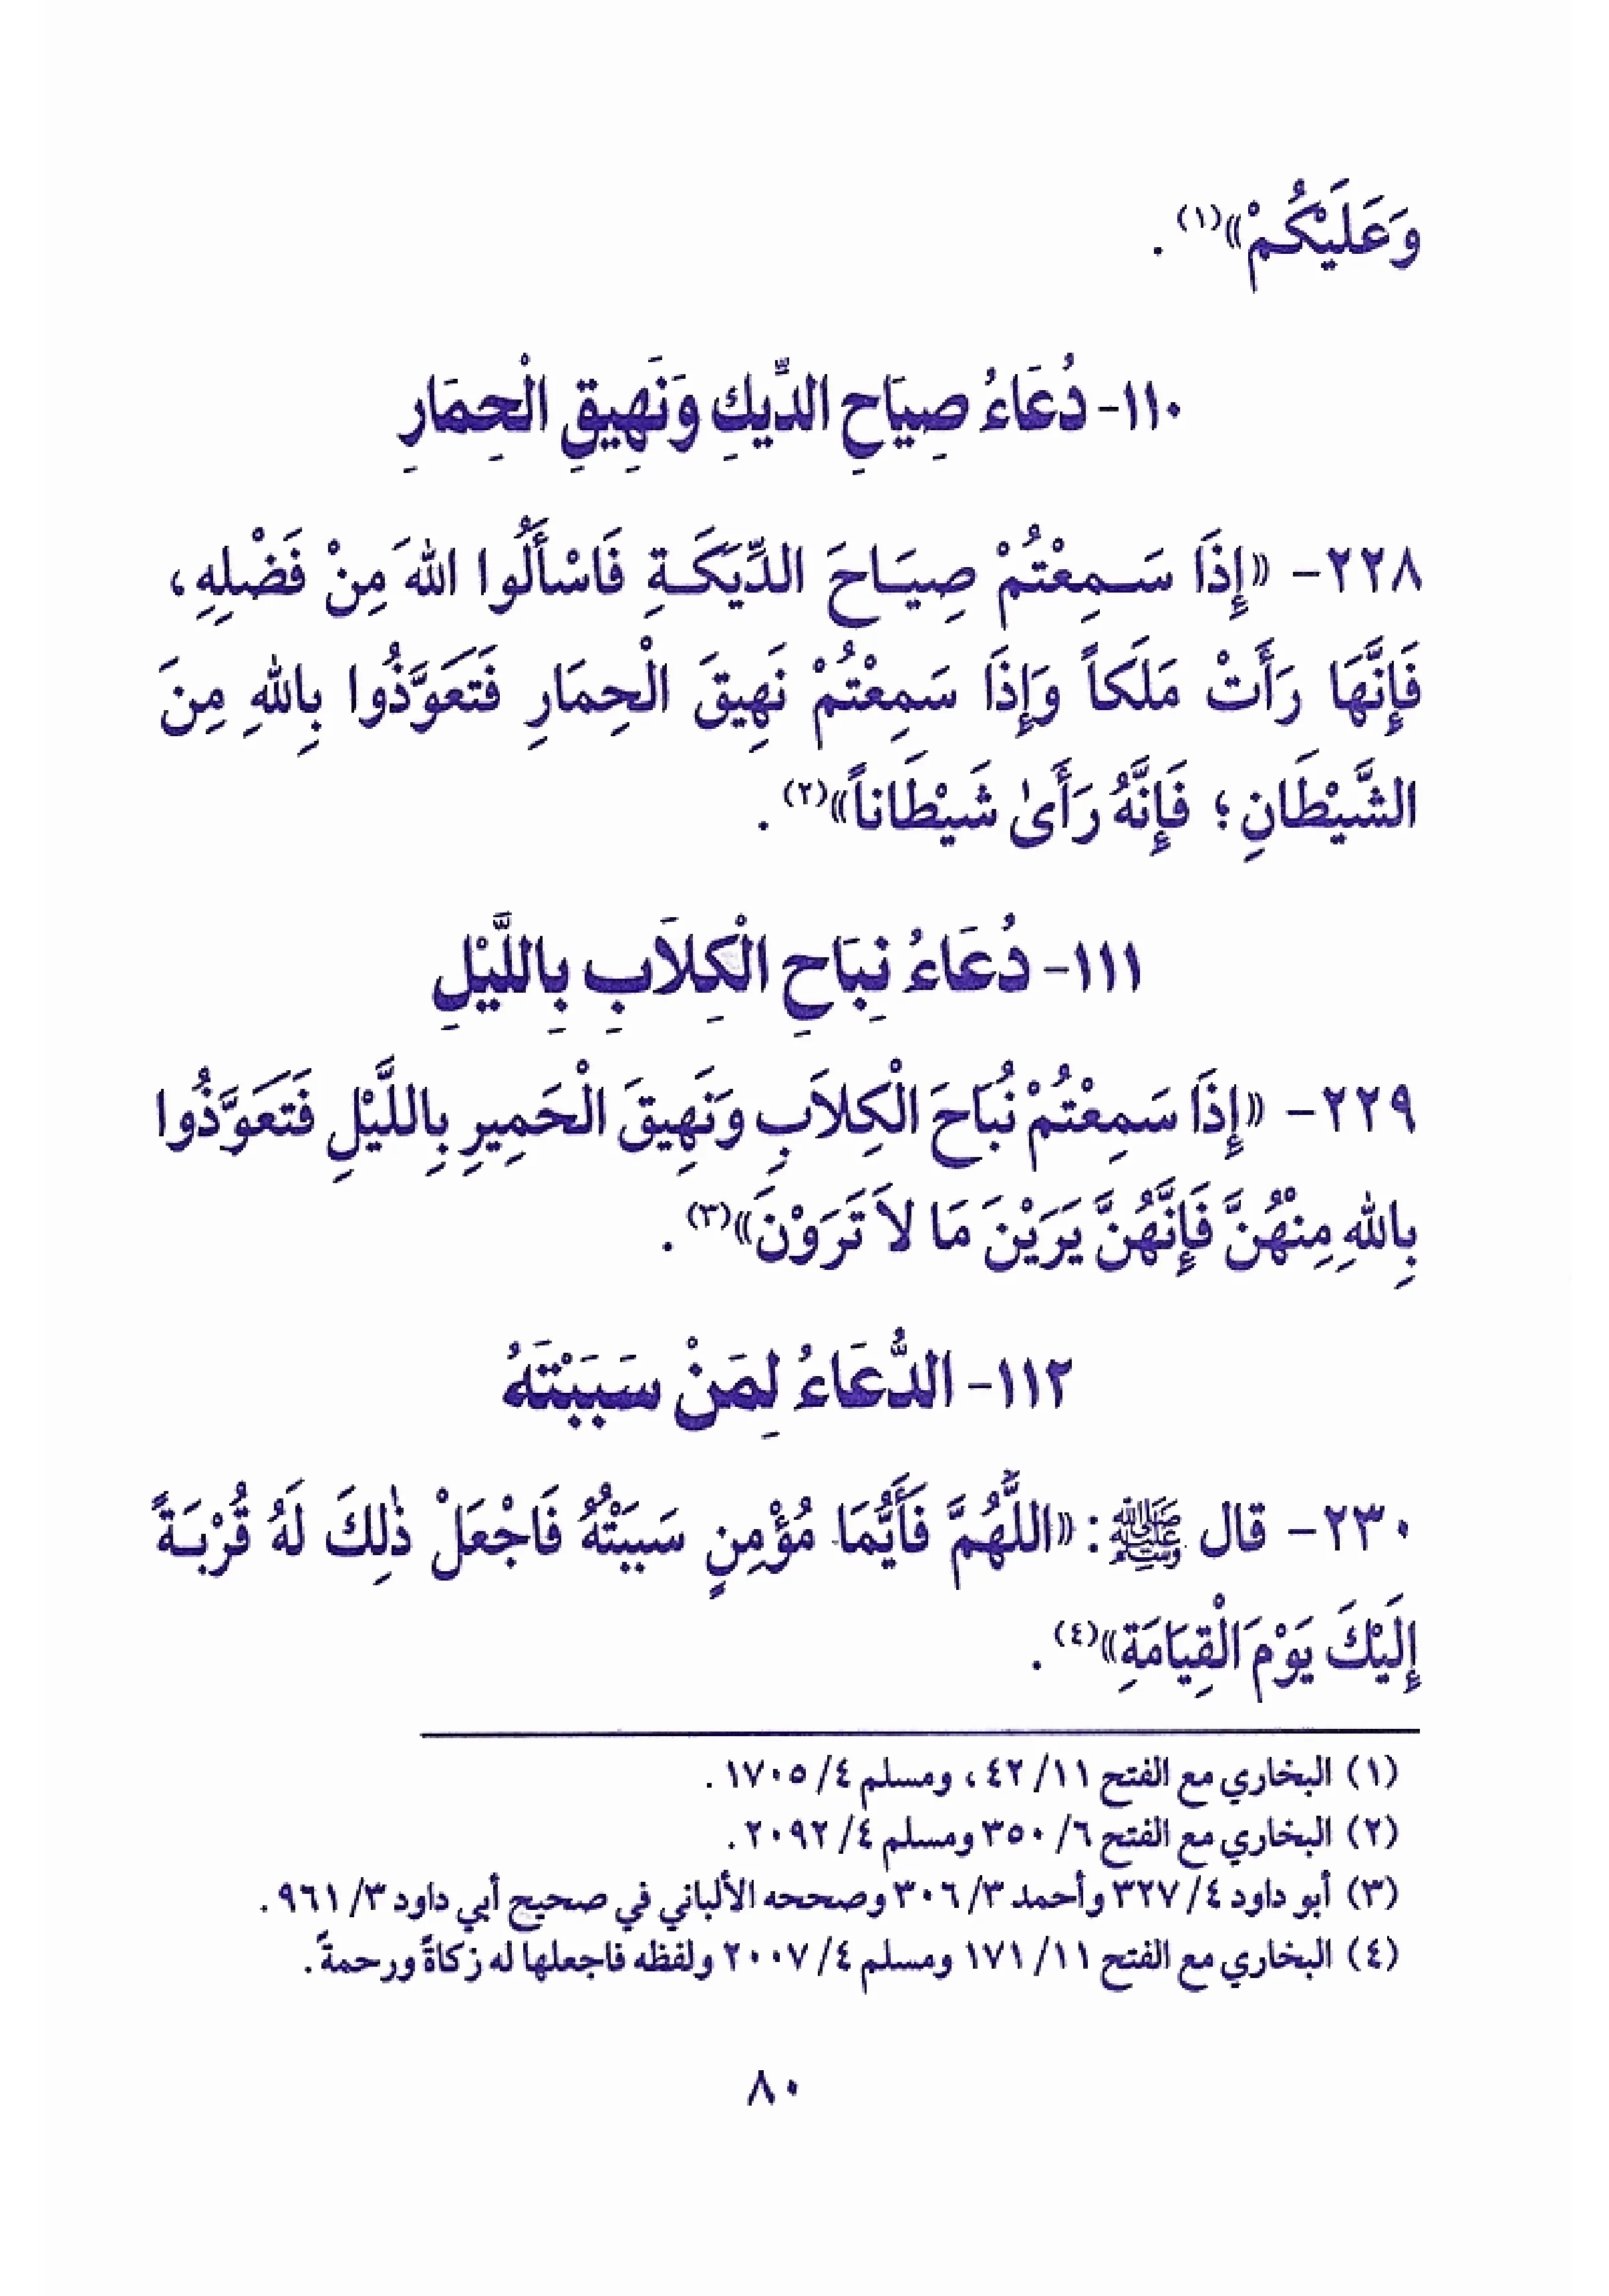 وَعَلَيْكُمْ»(١) .
١١٠- دُعَاءُ صِيَاحِ الدِّيكِ وَنَهِيقِ الْحِمَارِ
٢٢٨- «إِذَا سَمِعْتُمْ صِيَاحَ الدِّيَكَةِ فَاسْأَلُوا اللهَ مِنْ فَضْلِهِ،
فَإِنَّهَا رَأَتْ مَلَكاً وَإِذَا سَمِعْتُمْ نَهِيقَ الْحِمَارِ فَتَعَوَّذُوا بِاللهِ مِنَ
الشَّيْطَانِ؛ فَإِنَّهُ رَأَىٰ شَيْطَاناً»(٢) .
١١١- دُعَاءُ نِبَاحِ الْكِلاَبِ بِاللَّيْلِ
٢٢٩- «إِذَا سَمِعْتُمْ نُبَاحَ الْكِلاَبِ وَنَهِيقَ الْحَمِيرِ بِاللَّيْلِ فَتَعَوَّذُوا
بِاللهِ مِنْهُنَّ فَإِنَّهُنَّ يَرَيْنَ مَا لاَ تَرَوْنَ»(٣) .
١١٢- الدُّعَاءُ لِمَنْ سَبَبْتَهُ
٢٣٠- قال ﷺ: «اللَّهُمَّ فَأَيُّمَا مُؤْمِنٍ سَبَبْتُهُ فَاجْعَلْ ذٰلِكَ لَهُ قُرْبَةً
إِلَيْكَ يَوْمَ الْقِيَامَةِ»(٤) .
(١) البخاري مع الفتح ١١/ ٤٢، ومسلم ٤/ ١٧٠٥ .
(٢) البخاري مع الفتح ٦/ ٣٥٠ ومسلم ٤/ ٢٠٩٢ .
(٣) أبو داود ٤/ ٣٢٧ وأحمد ٣/ ٣٠٦ وصححه الألباني في صحيح أبي داود ٣/ ٩٦١ .
(٤) البخاري مع الفتح ١١/ ١٧١ ومسلم ٤/ ٢٠٠٧ ولفظه فاجعلها له زكاةً ورحمةً .
٨٠